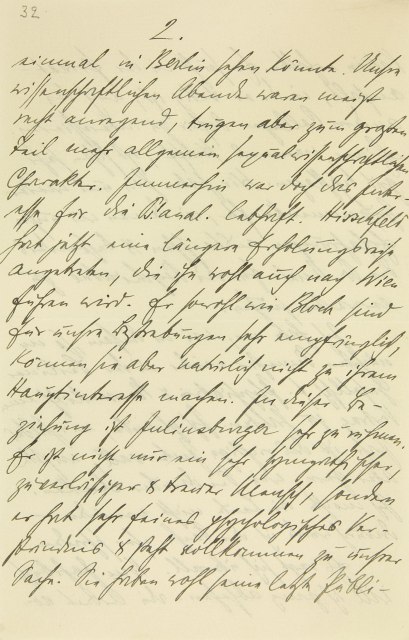 32
2.
einmal in Berlin sehen könnte. Unsre
wissenschaftlichen Abende waren meist
recht anregend, trugen aber zum großen
Teil mehr allgemein sexualwissenschaftlichen
Charakter. Immerhin war doch das Inter-
esse für die ΨAnal. lebhaft. Hirschfeld
hat jetzt eine längere Erholungsreise
angetreten, die ihn wohl auch nach Wien
führen wird. Er sowohl wie Bloch sind
für unsre Bestrebungen sehr empfänglich,
können sie aber natürlich nicht zu ihrem
Hauptinteresse machen. In dieser Be-
ziehung ist Juliusburger sehr zu rühmen.
Er ist nicht nur ein sehr sympathischer,
zuverlässiger & treuer Mensch, sondern
er hat sehr feines psychologisches Ver-
ständnis & steht vollkommen zu unsrer
Sache. Sie haben wohl seine letzte Publi-